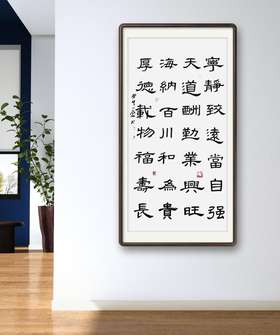 寧靜致遠當自强
天道酬勤業興旺
海納百川和為貴
厚德載物福壽長